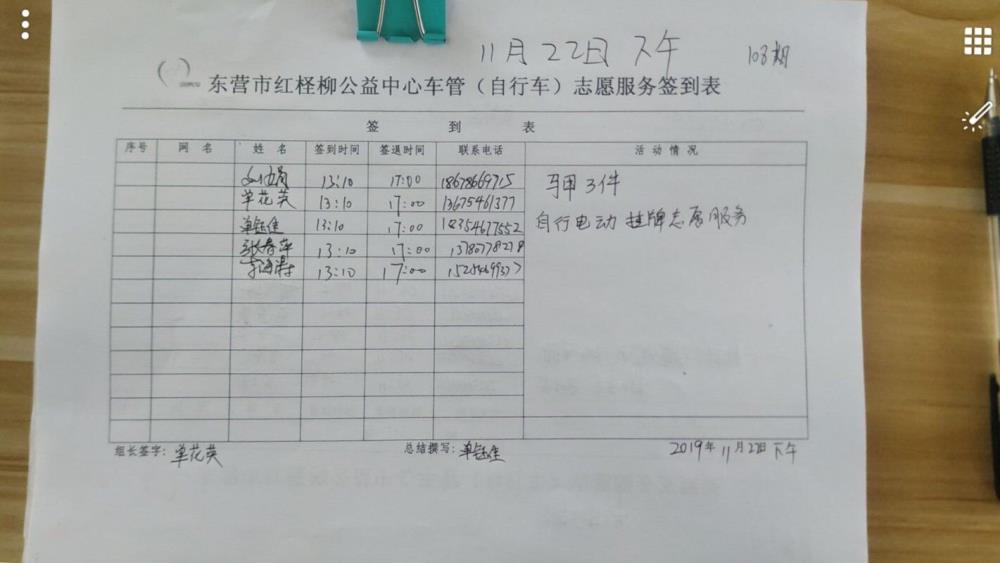 11月22日 下午 108期
东营市红柽柳公益中心车管（自行车）志愿服务签到表
签 到 表
序号 网 名 姓 名 签到时间 签退时间 联系电话 活动情况
13:10 17:00 18678669715 马甲3件
单花英 13:10 17:00 13675461377
单钰佳 13:10 17:00 18354677552 自行电动挂牌志愿服务
张春萍 13:10 17:00 13780778278
李海涛 13:10 17:00
组长签字：单花英 总结撰写：单钰佳 2019年11月22日下午